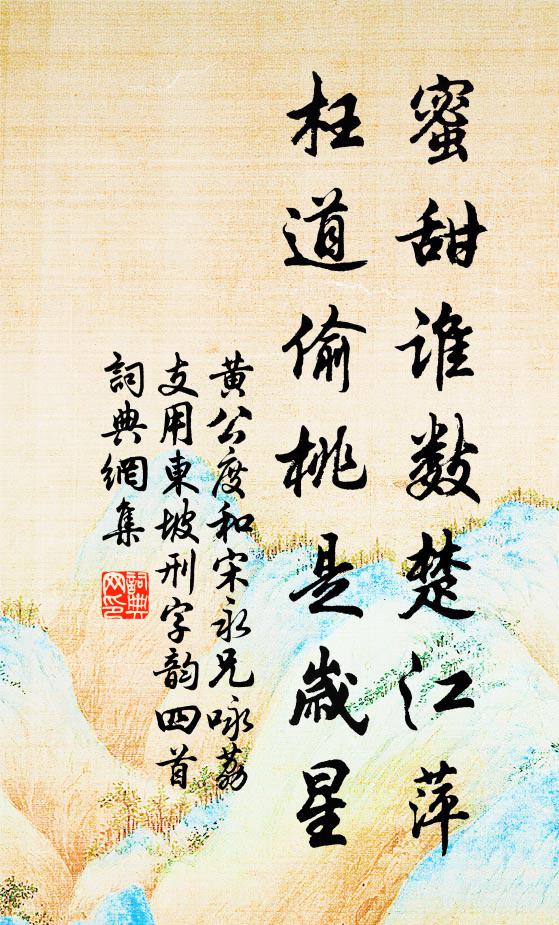 蜜甜谁数楚江萍
枉道偷桃是岁星
黄公度和宋永兄咏荔
支用東坡刑字韵四首
詞典網集
詞典网印